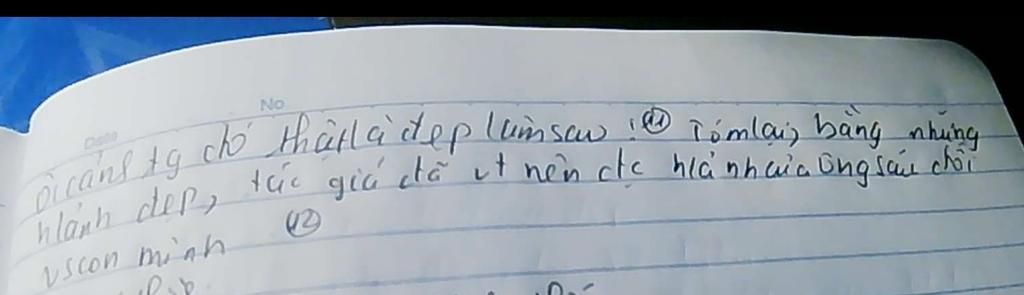 No
Date
Ôi cảnh tg đó thật là đẹp làm sao ! (11) Tóm lại, bằng những
h/ảnh đẹp, tác giả đã vt nên đc h/ảnh của ông sáu đối
vs con mình (12)